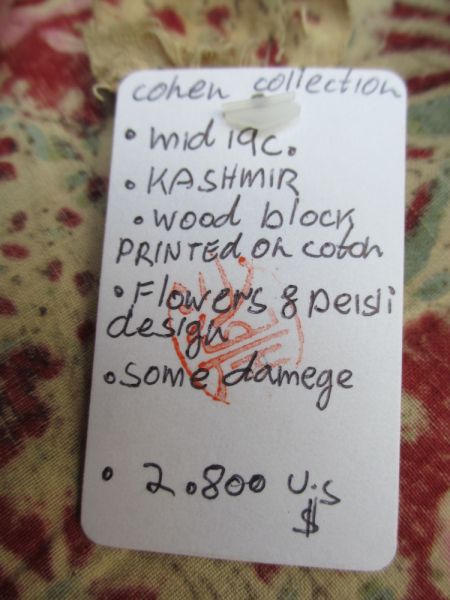 cohen collection
• mid 19c.
• KASHMIR
• wood block
PRINTED on coton
• Flowers & peisli
design
• some damege
• 2.800 U.S
$